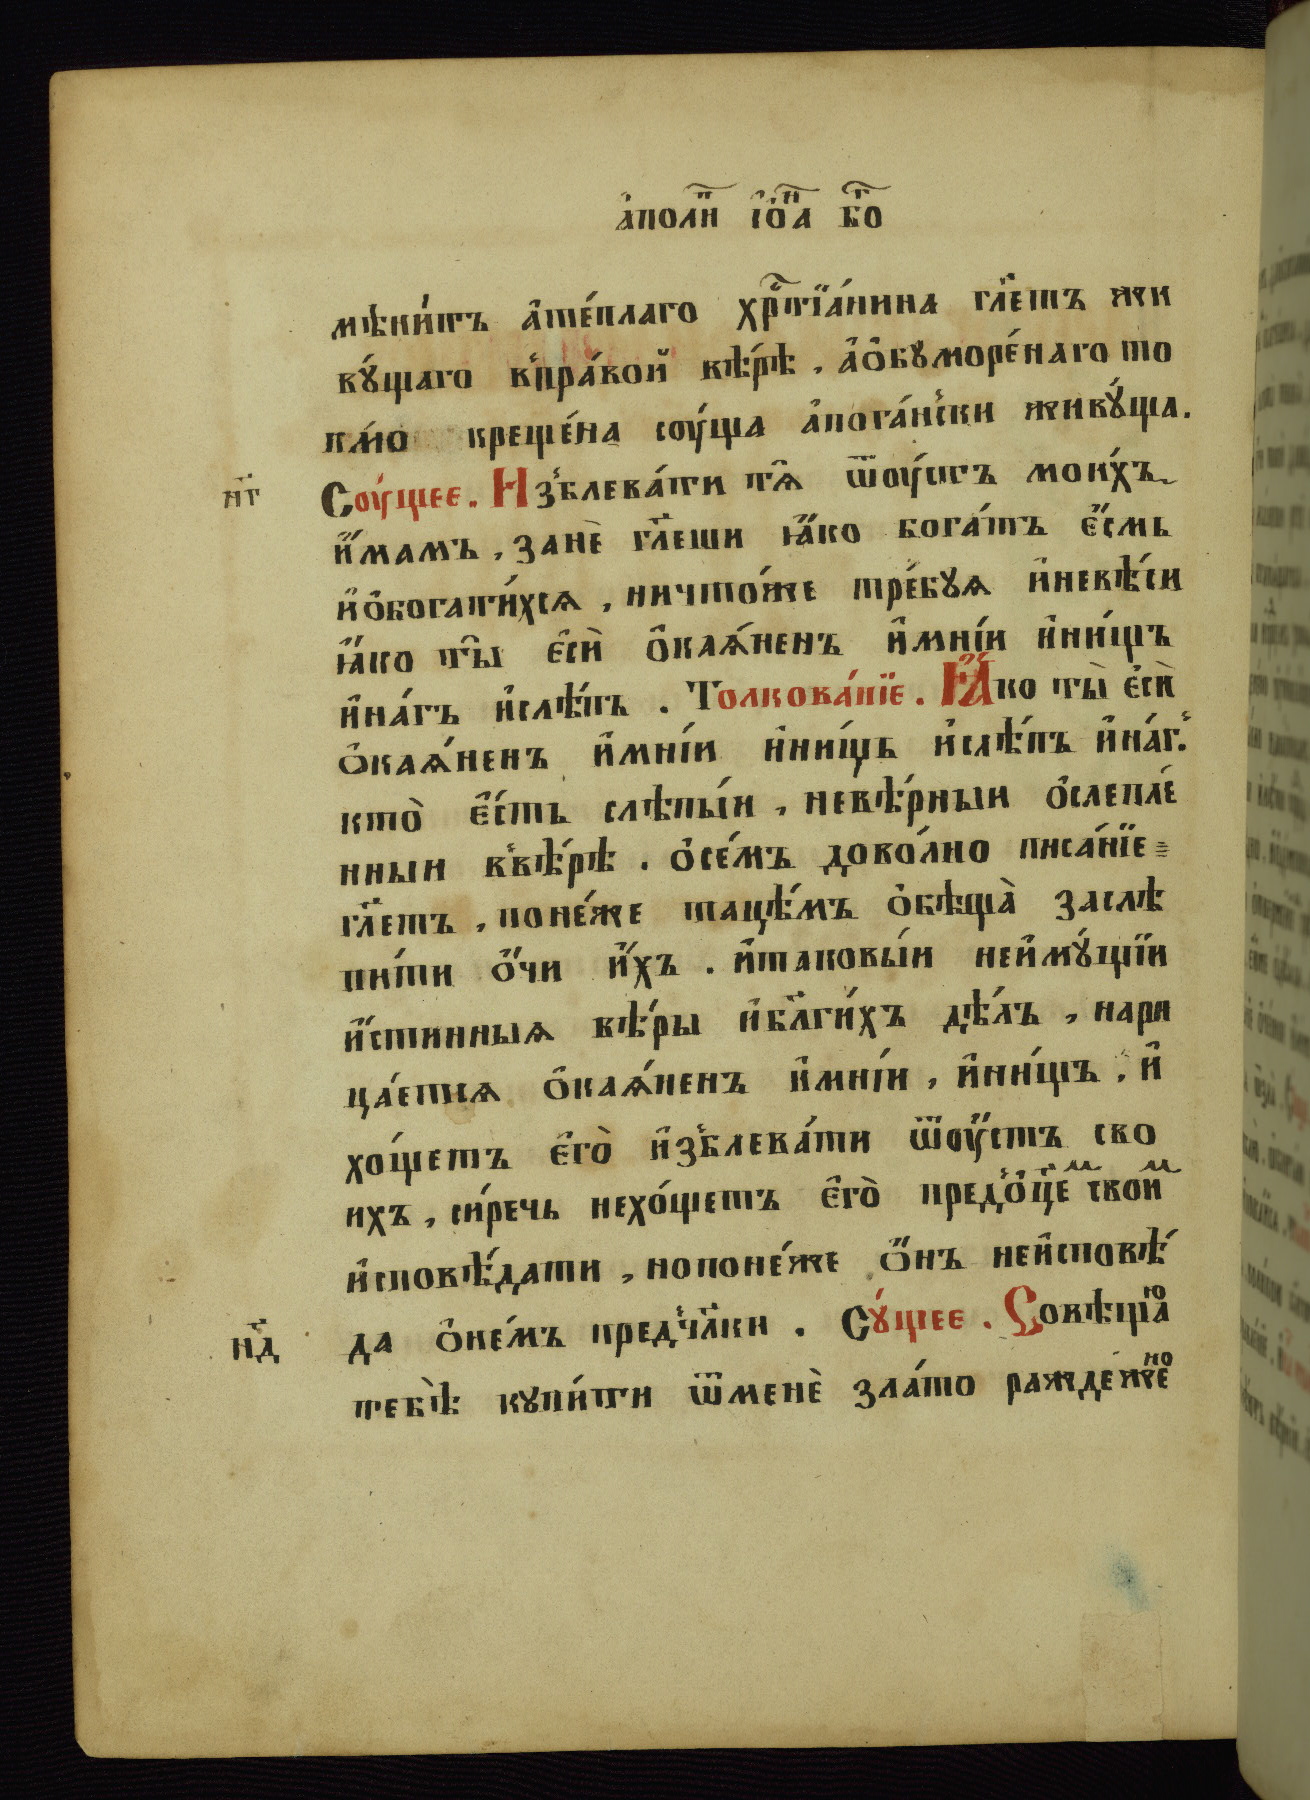 а҆полⷫ҇и і҆ѻⷩ҇а бⷢ҇о
мѣни́тъ а҆те́плаго хрⷭ҇тїа́нина гл҃етъ жи
вꙋ́щаго впра́вой вѣ́рѣ , а҆ѻ҆бꙋморе́наго то
кмѡ креще́на соу́ща а҆пога́нски живꙋ́ща .
нг҃
Соу́щее . Изблева́ти тѧ̑ ѿоу́стъ мои́хъ
и҆́мамъ , занѐ гл҃еши ꙗ҆́ко бога́тъ є҆́смь
и҆ѻ҆богати́хсѧ , ничто́же тре́бꙋѧ и҆невѣ́си
ꙗ҆́ко ты̑ є҆сѝ ѻ҆каѧ́ненъ и҆мні́и и҆ни́щъ
и҆на́гъ и҆слѣ́пъ . Толкова́нїе . Ꙗ҆́ко ты̀ є҆сѝ
ѻ҆каѧ́ненъ и҆мні́и и҆ни́щъ и҆слѣ́пъ и҆на́г .
кто̀ є҆́сть слѣпы́и , невѣ́рныи ѻ҆слепле́
нныи ввѣ́рѣ . ѻ҆се́мъ дово́лно писа́нїе
гл҃етъ , поне́же тацѣ́мъ ѻ҆бѣща̀ заслѣ
пи́ти ѻ҆́чи и҆́хъ . и҆таковы́и неи҆мꙋ́щїи
и҆́стинныѧ вѣ́ры и҆бл҃ги́хъ дѣ́лъ , нари
ца́етсѧ ѻ҆каѧ́ненъ и҆мні́и , и҆ни́щъ , и҆
хо́щетъ є҆го̀ и҆зблева́ти ѿоу́стъ сво
ихъ , си́речь нехо́щетъ є҆го̀ предѻ҆ц҃еⷨ свои́ⷨ
и҆сповѣ́дати , нопоне́же ѻ҆́нъ неи҆сповѣ́
нд҃
да ѻ҆не́мъ предчл҃ки . Сꙋ́щее . Совѣщаю
тебѣ̀ кꙋпи́ти ѿменѐ зла́то ражде́жено